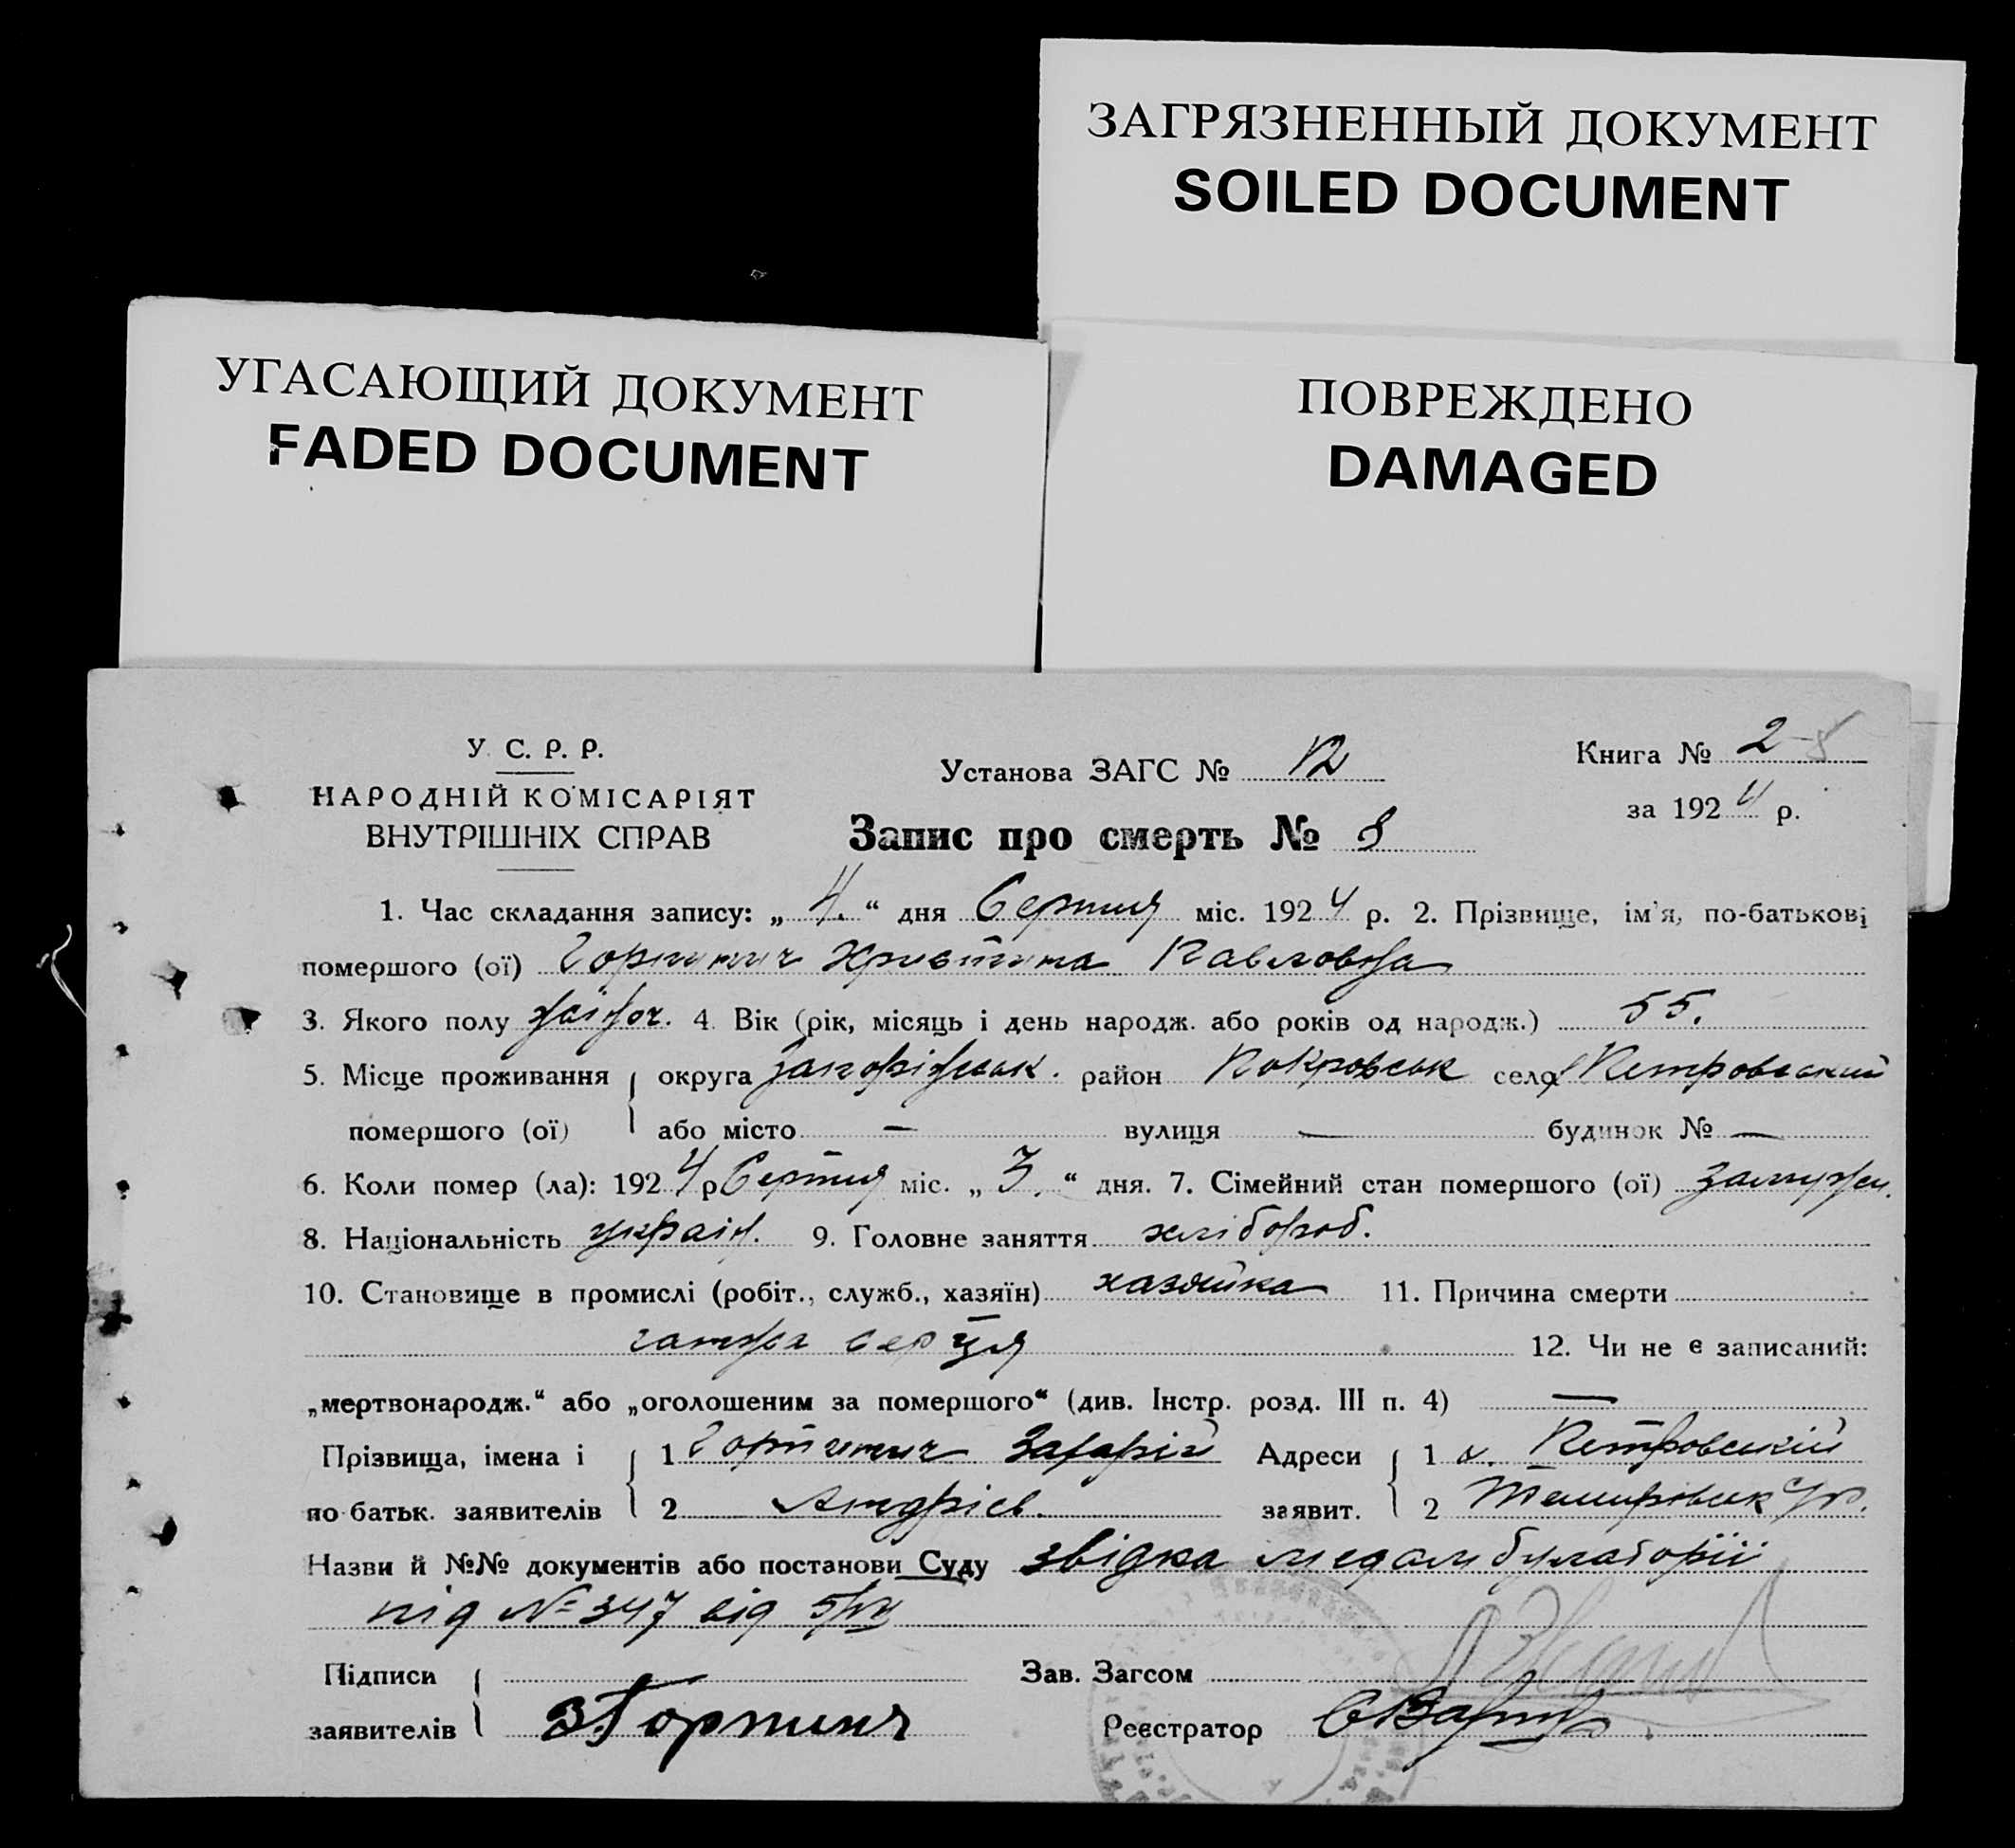 ЗАГРЯЗНЕННЫЙ ДОКУМЕНТ
SOILED DOCUMENT
УГАСАЮЩИЙ ДОКУМЕНТ
FADED DOCUMENT
ПОВРЕЖДЕНО
DAMAGED
У. С. Р. Р.
НАРОДНІЙ КОМІСАРІЯТ
ВНУТРІШНІХ СПРАВ
Установа ЗАГС № 12
Запис про смерть № 8
Книга № 2
за 1924 р.
1. Час складання запису: „ 4. “ дня Серпня міс. 1924 р. 2. Прізвище, ім'я, по-батькові
помершого (ої) Христина Павловна
3. Якого полу жіноч. 4. Вік (рік, місяць і день народж. або років од народж.) 55.
5. Місце проживання округа Запоріжськ. район Покровськ село Петровський
помершого (ої) або місто — вулиця — будинок № —
6. Коли помер (ла): 1924 р Серпня міс. „ 3. “ дня. 7. Сімейний стан помершого (ої) замужн.
8. Національність україн. 9. Головне заняття хлібороб.
10. Становище в промислі (робіт., служб., хазяїн) хазяйка 11. Причина смерти
серця 12. Чи не є записаний:
„мертвонародж.“ або „оголошеним за помершого“ (див. Інстр. розд. III п. 4) —
Прізвища, імена і 1 Захарій Адреси 1 х. Петровський
по батьк. заявителів 2 Андрієв. заявит. 2
Назви й №№ документів або постанови Суду звідка медамбулаторії
під № 347 від
Підписи Зав. Загсом
заявителів Реєстратор